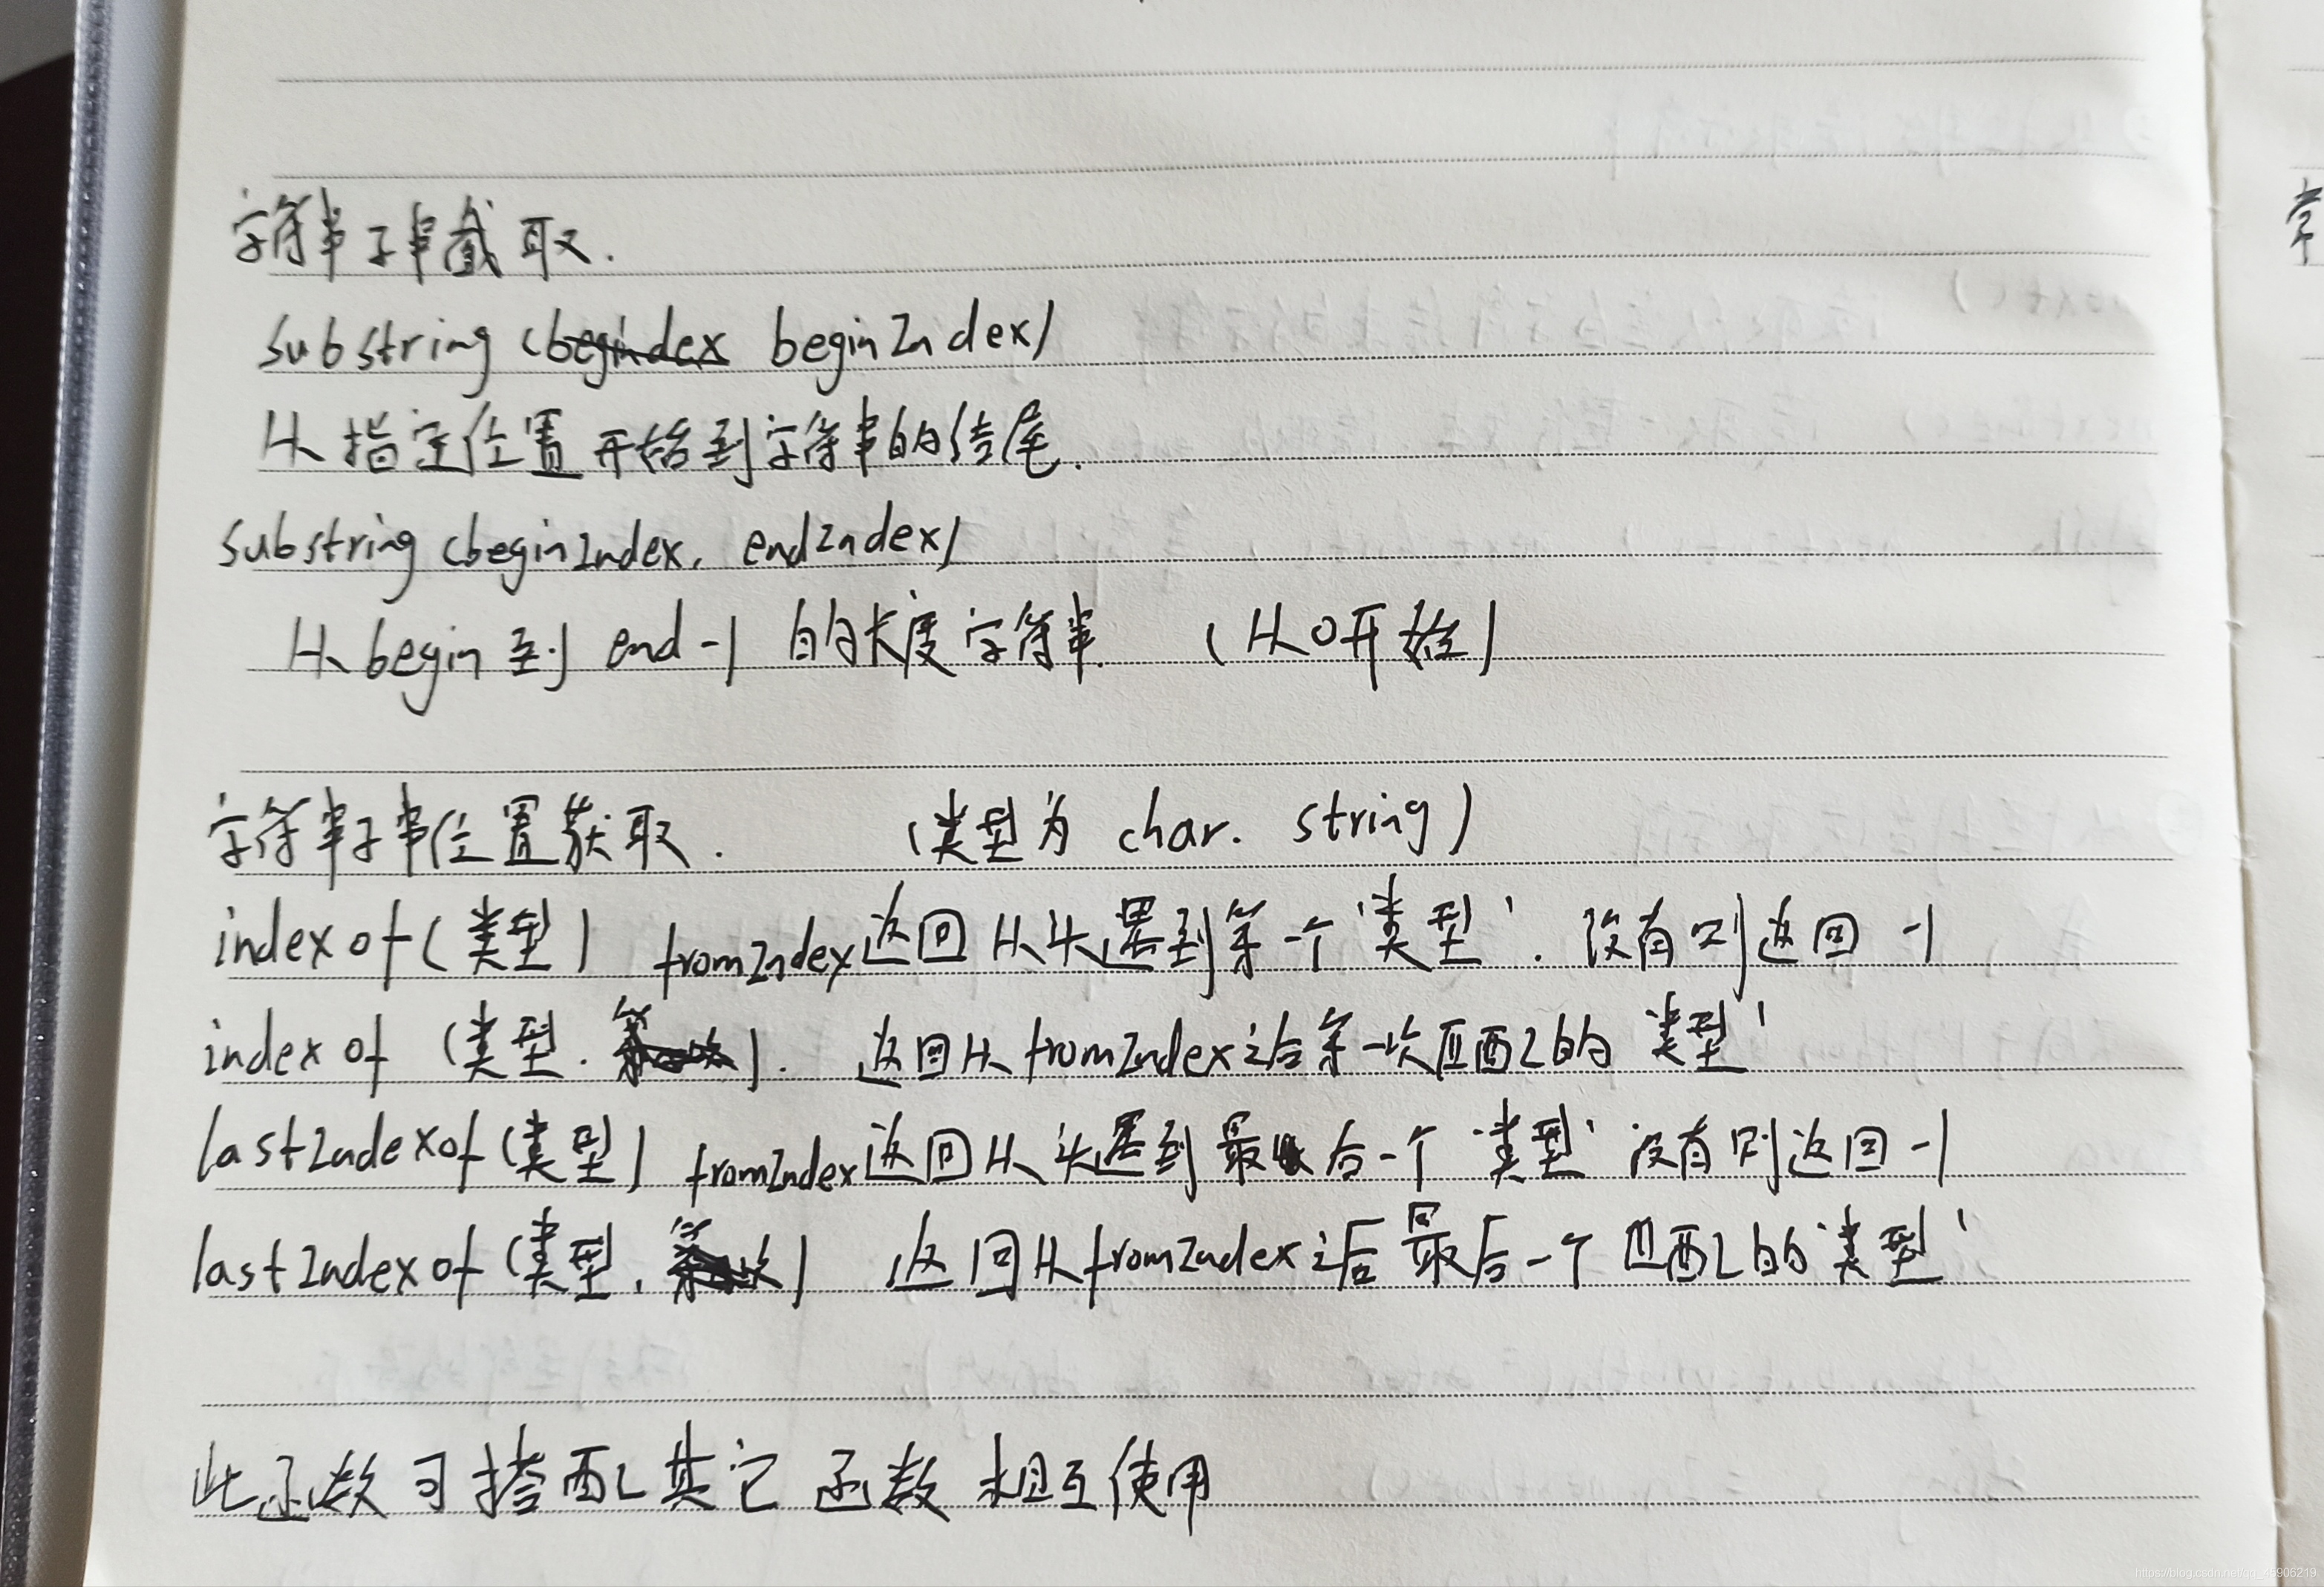 字符串子串截取.
substring (beginIndex)
从指定位置开始到字符串的结尾.
substring (beginIndex, endIndex)
从begin到 end-1 的长度字符串. (从0开始)
字符串子串位置获取. (类型为 char. string)
indexof(类型) fromIndex返回从头遇到第一个'类型'. 没有则返回 -1
indexof (类型. ). 返回从fromIndex之后第一次匹配的 '类型'
lastIndexof(类型) fromIndex返回从头遇到最后一个 '类型' 没有则返回 -1
lastIndexof(类型, ) 返回从fromIndex之后最后一个匹配的'类型'
此函数可搭配其它函数相互使用
常
https://blog.csdn.net/qq_45906219